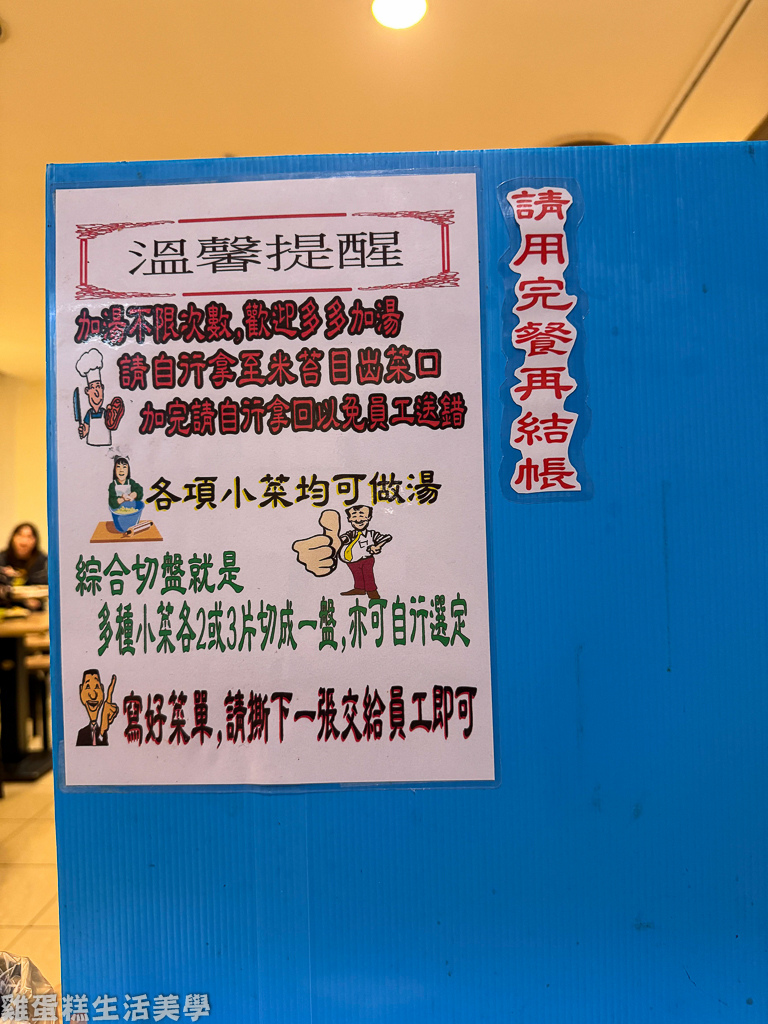 溫馨提醒
加湯不限次數,歡迎多多加湯
請自行拿至米苔目出菜口
加完請自行拿回以免員工送錯
各項小菜均可做湯
綜合切盤就是
多種小菜各2或3片切成一盤,亦可自行選定
寫好菜單,請撕下一張交給員工即可
請用完餐再結帳
雞蛋糕生活美學